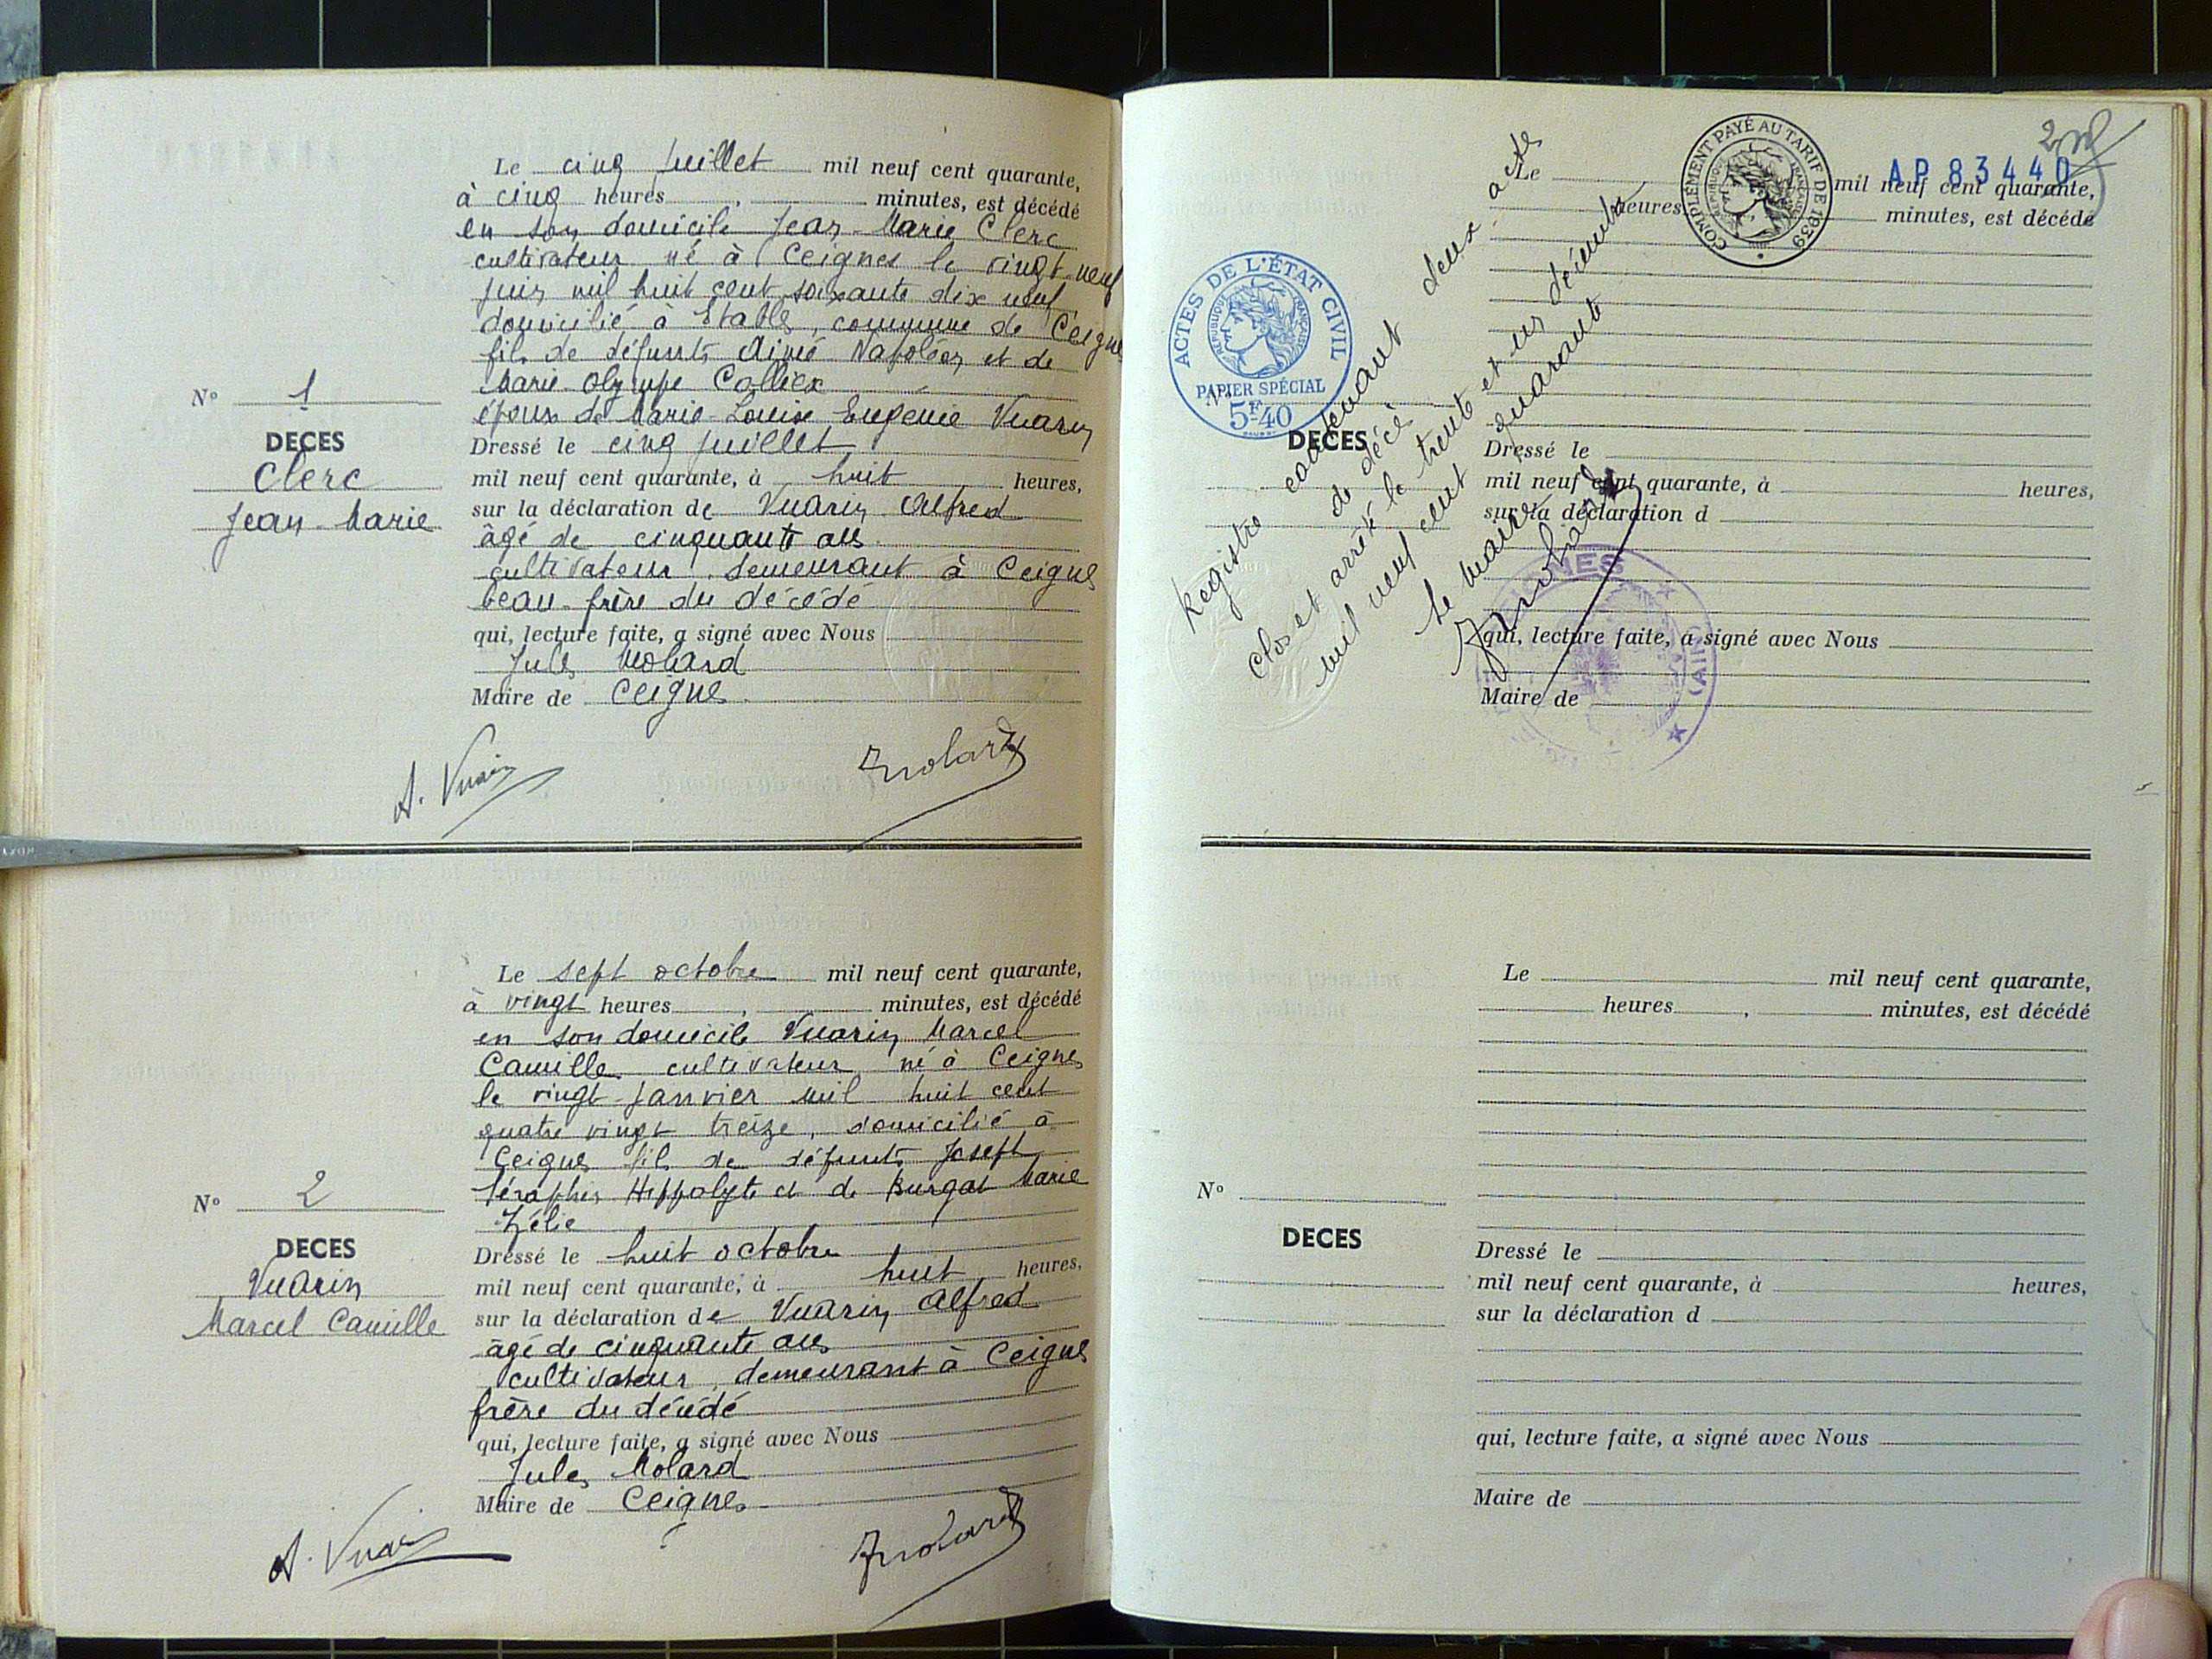 Le cinq Juillet mil neuf cent quarante,
à cinq heures , minutes, est décédé
en son domicile Jean-Marie Clerc
cultivateur né à Ceignes le vingt-neuf
juin mil huit cent soixante dix neuf
domicilié à Étables, commune de Ceignes
fils de défunts Aimé Napoléon et de
Marie Olympe Collex
époux de Marie-Louise Eugénie Vuarin
N° 1
DECES
Clerc
Jean-Marie
Dressé le cinq juillet
mil neuf cent quarante, à huit heures,
sur la déclaration de Vuarin Alfred
âgé de cinquante ans
cultivateur, demeurant à Ceignes
beau-frère du décédé
qui, lecture faite, a signé avec Nous
Jules Molard
Maire de Ceignes
A. Vuarin
JMolard
Le sept octobre mil neuf cent quarante,
à vingt heures , minutes, est décédé
en son domicile Vuarin Marcel
Camille cultivateur né à Ceignes
le vingt-janvier mil huit cent
quatre vingt treize, domicilié à
Ceignes fils de défunts Joseph
Séraphin Hippolyte et de Burgat Marie
Zélie
N° 2
DECES
Vuarin
Marcel Camille
Dressé le huit octobre
mil neuf cent quarante, à huit heures,
sur la déclaration de Vuarin Alfred
âgé de cinquante ans
cultivateur, demeurant à Ceignes
frère du décédé
qui, lecture faite, a signé avec Nous
Jules Molard
Maire de Ceignes
A. Vuarin
JMolard
COMPLÉMENT PAYÉ AU TARIF DE 1939
RÉPUBLIQUE FRANÇAISE
AP 83440
Le mil neuf cent quarante,
heures minutes, est décédé
ACTES DE L'ÉTAT CIVIL
RÉPUBLIQUE FRANÇAISE
PAPIER SPÉCIAL
5F40
Registre contenant deux actes
de décès
clos et arrêté le trente et un décembre
mil neuf cent quarante
Le Maire
JMolard
DECES
Dressé le
mil neuf cent quarante, à heures,
sur la déclaration d
qui, lecture faite, a signé avec Nous
Maire de
(AIN)
Le mil neuf cent quarante,
heures , minutes, est décédé
N°
DECES
Dressé le
mil neuf cent quarante, à heures,
sur la déclaration d
qui, lecture faite, a signé avec Nous
Maire de